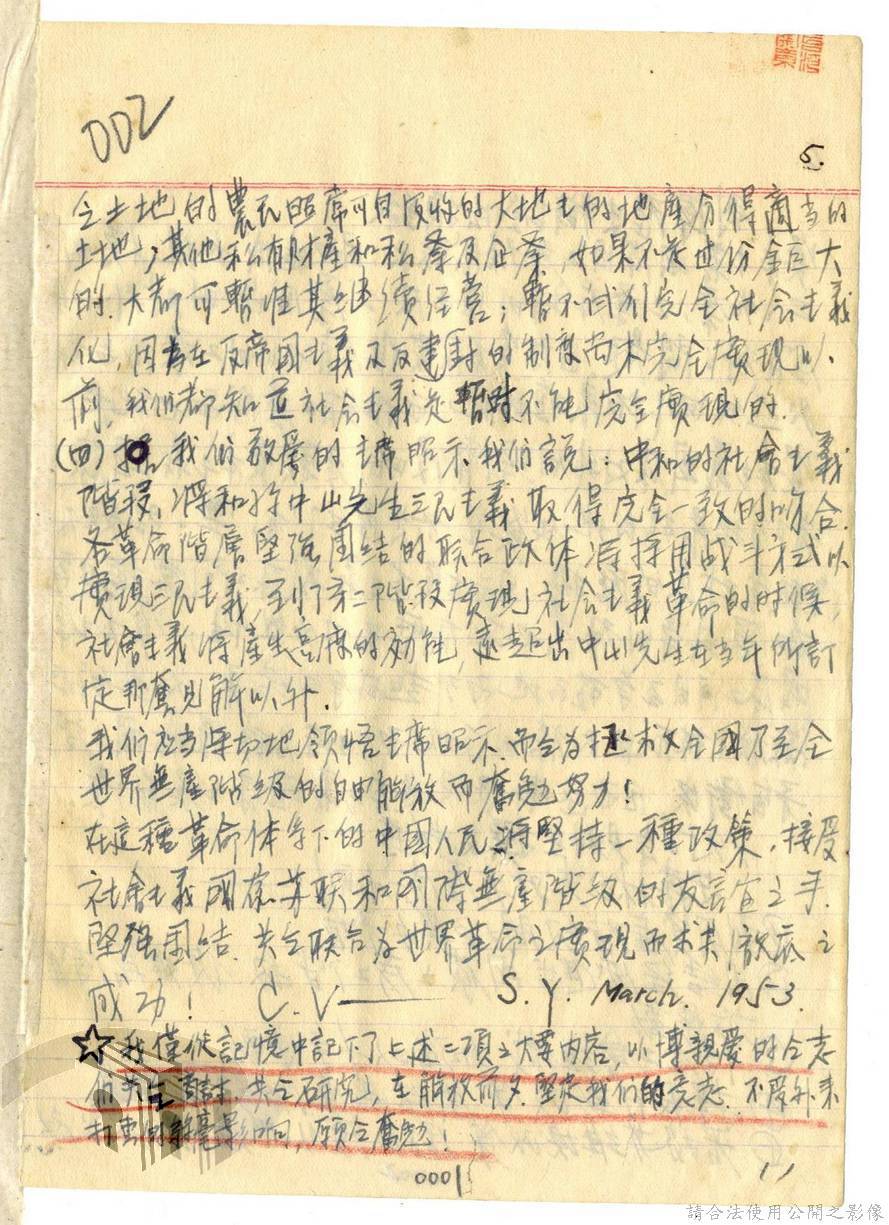 002
5.
土地的農民照席以自沒收的大地主的地產分得適当的
土地，其他私有財產和私業及企業，如果不是过份鉅大
的，大都可暫准其继續经营；暫不试行完全社会主義
化，因為在反帝國主義及反封建的制度尚未完全實現以
前，我们都知道社会主義是暫时不能完全實現的．
(四)我们敬愛的主席昭示我们說：中和的社會主義
階段，将和孫中山先生三民主義取得完全一致的吻合．
各革命階層堅強團结的联合政体将採用战斗方式以
實現三民主義，到了第二階段實現社会主義革命的时候，
社會主義将產生高度的効能，远超出中山先生在当年所訂
定那舊見解以外．
我们应当深切地領悟主席昭示而今為拯救全國乃至全
世界無產階級的自由解放而奮勉努力！
在這種革命体系下的中國人民将堅持一種政策，接受
社會主義國家苏联和國際無產階級的友誼之手．
堅强團结，共仝联合為世界革命之實現而求其澈底之
成功！ C.V—— S.Y. March. 1953.
☆我僅從記憶中記下了上述二項之大要内容，以博親愛的仝志
们共仝檢討，共仝研究，在解放前夕堅定我们的意志，不受外来
打击的絲毫影响，願仝奮勉！
0001
11
請合法使用公開之影像